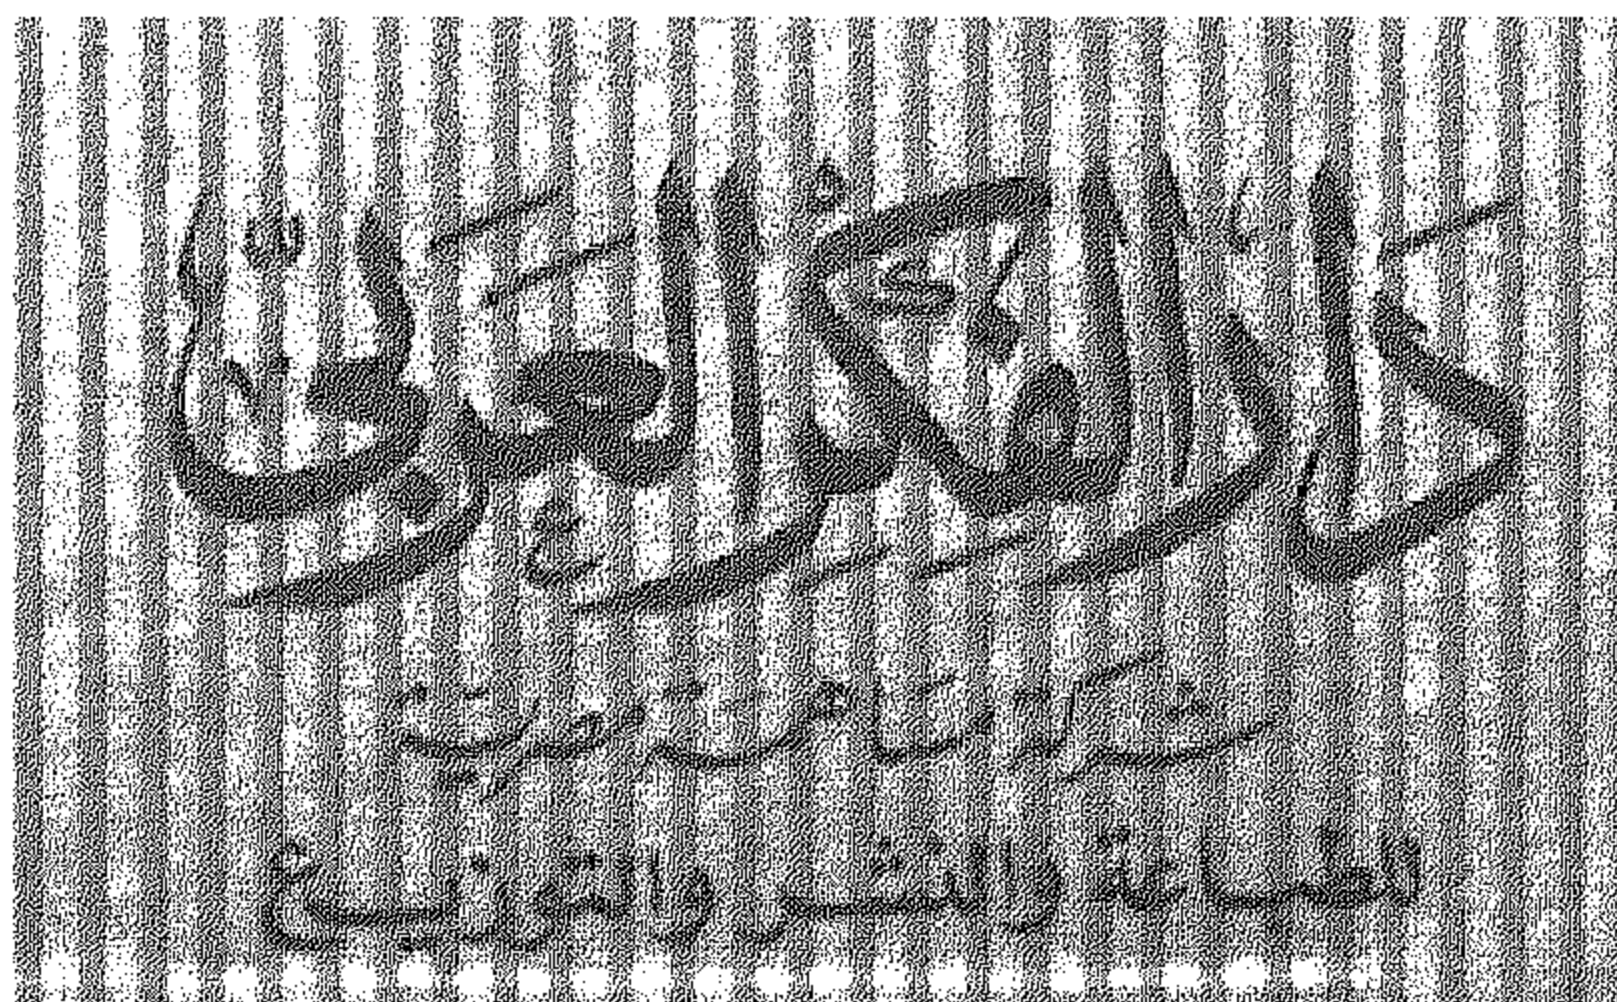 دار الفكر العربي
للطباعة والنشر والتوزيع